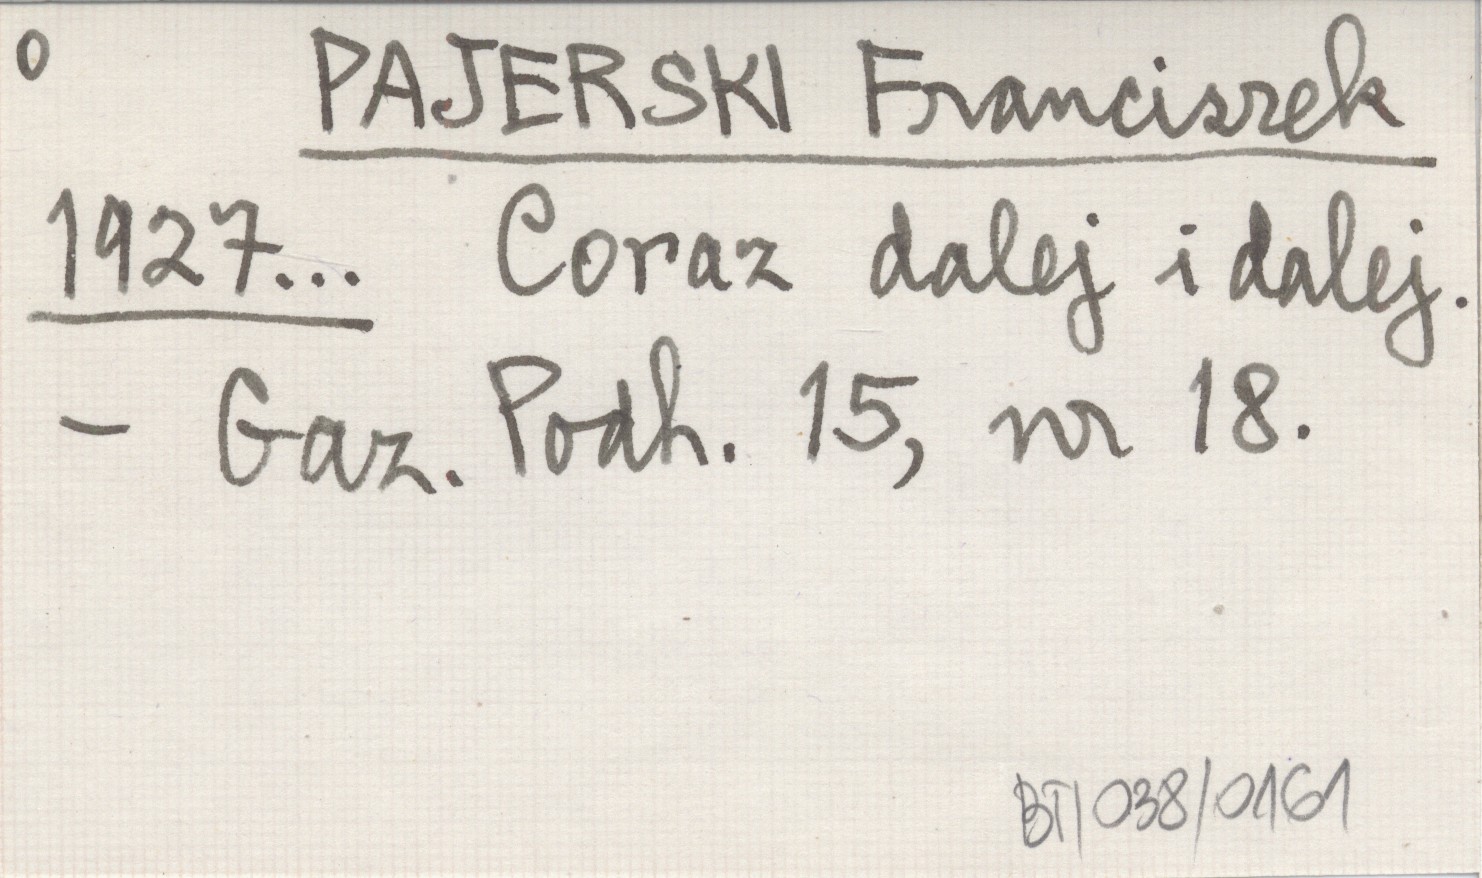 o PAJERSKI Franciszek
1927... Coraz dalej i dalej.
- Gaz. Podh. 15, nr 18.
BT/038/0161